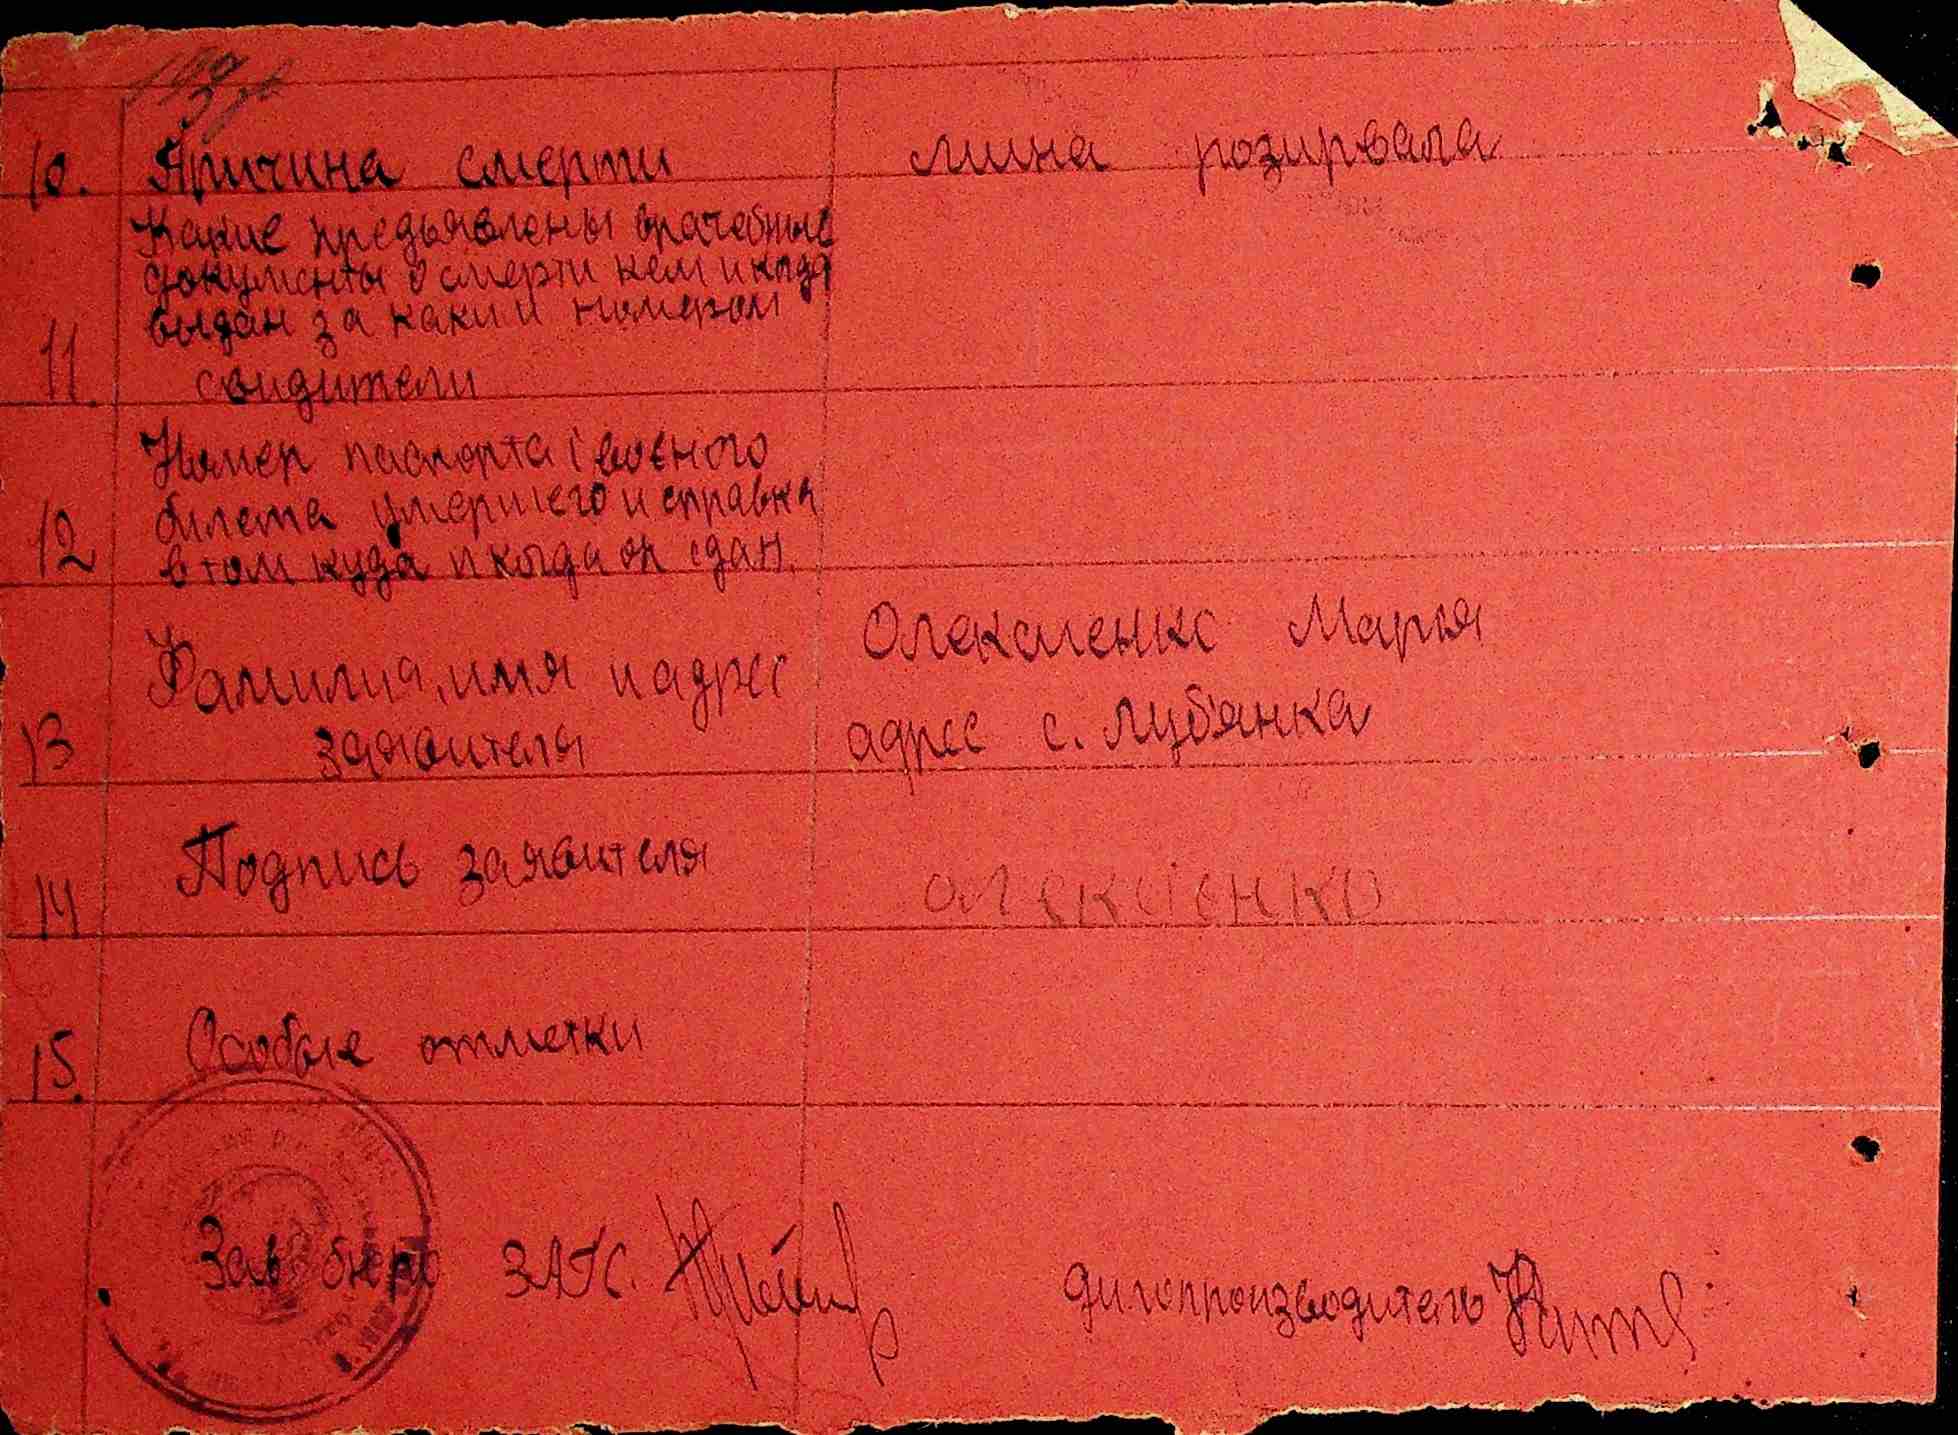 10. Причина смерти мина розирвала
Какие предьявлены врачебные
документы о смерти кем и когда
выдан за каким номером
11. свидители
Номер паспорта і военого
билета умершего и справка
12 в том куда и когда он сдан.
Олексиенко Марья
Фамилия, имя и адрес
13 заявителя адрес с. Луб'янка
14 Подпись заявителя олексиенко
15. Особые отметки
Зав бюро ЗАГС. дилопроизводитель